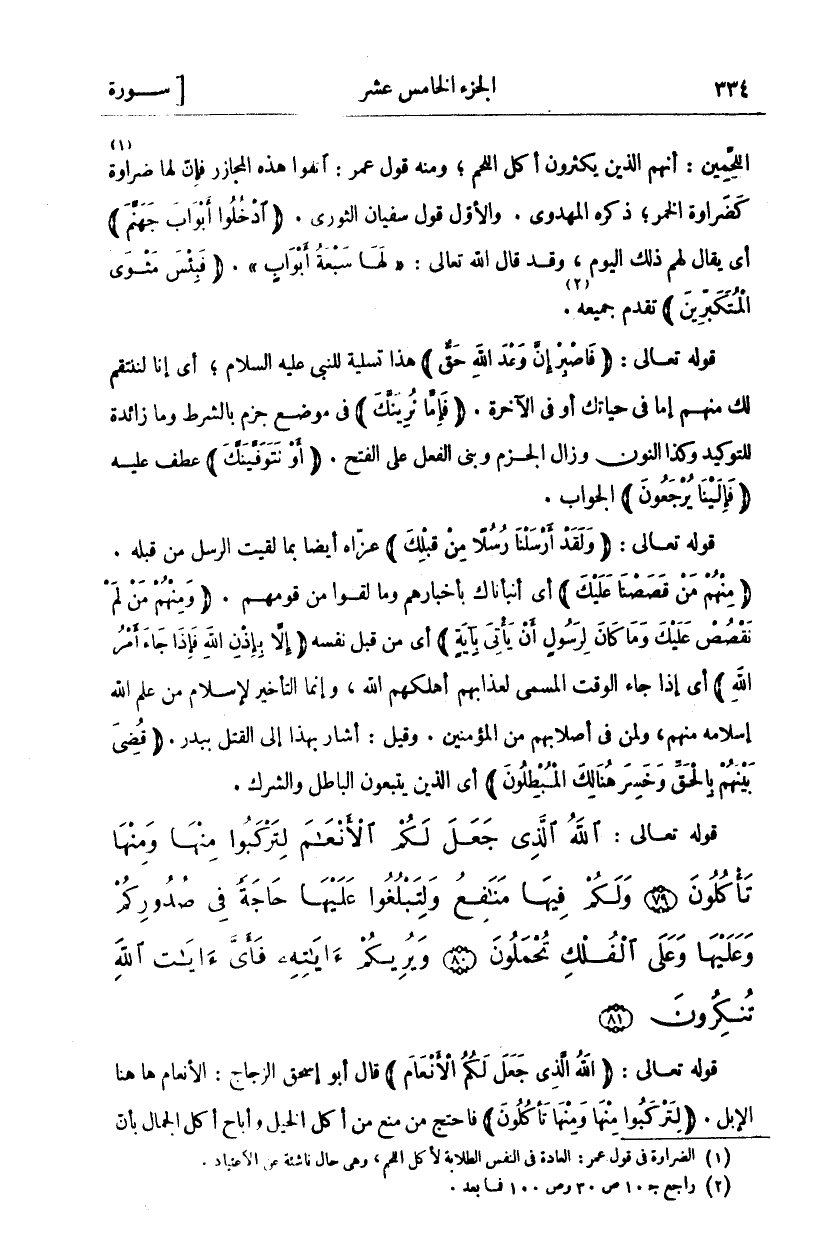 ٣٣٤ الجزء الخامس عشر [ ســـورة
(١)
اللَّحِمين : أنهم الذين يكثرون أكل اللحم ؛ ومنه قول عمر : اتقوا هذه المجازر فإنّ لها ضراوة
كَضَراوة الخمر؛ ذكره المهدوى . والأوّل قول سفيان الثورى . ﴿ ٱدْخُلُوا أَبْوَابَ جَهَنَّمَ ﴾
أى يقال لهم ذلك اليوم ، وقـد قال الله تعالى : « لَهَـا سَبْعَةُ أَبْوَابٍ » . ﴿ فَبِئْسَ مَثْـوَى
الْمُتَكَبِّرِينَ ﴾ تقدم جميعه (٢) .
قوله تعـالى : ﴿ فَاصْبِرْ إِنَّ وَعْدَ اللهِ حَقٌّ ﴾ هذا تسلية للنبى عليه السلام ؛ أى إنا لننتقم
لك منهـم إما فى حياتك أو فى الآخرة . ﴿ فَإِمَّا نُرِيَنَّكَ ﴾ فى موضـع جزم بالشرط وما زائدة
للتوكيد وكذا النون وزال الجـزم وبنى الفعل على الفتح . ﴿ أَوْ نَتَوَفَّيَنَّكَ ﴾ عطف عليـه
﴿ فَإِلَيْنَا يُرْجَعُونَ ﴾ الجواب .
قوله تعـالى : ﴿ وَلَقَدْ أَرْسَلْنَا رُسُلًا مِنْ قَبْلِكَ ﴾ عزّاه أيضا بما لقيت الرسل من قبله .
﴿ مِنْهُمْ مَنْ قَصَصْنَا عَلَيْكَ ﴾ أى أنبأناك بأخبارهم وما لقـوا من قومهـم . ﴿ وَمِنْهُمْ مَنْ لَمْ
نَقْصُصْ عَلَيْكَ وَمَا كَانَ لِرَسُولٍ أَنْ يَأْتِىَ بِآيَةٍ ﴾ أى من قبل نفسه ﴿ إِلَّا بِإِذْنِ اللهِ فَإِذَا جَاءَ أَمْرُ
اللهِ ﴾ أى إذا جاء الوقت المسمى لعذابهم أهلكهم الله ، وإنما التأخير لإسـلام من علم الله
إسلامه منهم، ولمن فى أصلابهم من المؤمنين . وقيل : أشار بهذا إلى القتل ببدر . ﴿ قُضِىَ
بَيْنَهُمْ بِالْحَقِّ وَخَسِرَ هُنَالِكَ الْمُبْطِلُونَ ﴾ أى الذين يتبعون الباطل والشرك .
قوله تعـالى : ٱللَّهُ ٱلَّذِى جَعَـلَ لَـكُمُ ٱلْأَنْعَـٰمَ لِتَرْكَبُوا مِنْهَـا وَمِنْهَا
تَأْكُلُونَ ٧٩ وَلَـكُمْ فِيهَـا مَنَـٰفِعُ وَلِتَبْلُغُوا عَلَيْهَـا حَاجَةً فِى صُدُورِكُمْ
وَعَلَيْهَا وَعَلَى ٱلْفُـلْكِ تُحْمَلُونَ ٨٠ وَيُرِيكُمْ ءَايَـٰتِهِۦ فَأَىَّ ءَايَـٰتِ ٱللَّهِ
تُنكِرُونَ ٨١
قوله تعـالى : ﴿ اللهُ الَّذِى جَعَلَ لَكُمُ الْأَنْعَامَ ﴾ قال أبو إسحق الزجاج : الأنعام ها هنا
الإبل . ﴿ لِتَرْكَبُوا مِنْهَا وَمِنْهَا تَأْكُلُونَ ﴾ فاحتج من منع من أكل الخيل وأباح أكل الجمال بأن
(١) الضراوة فى قول عمر : العادة فى النفس الطلابة لأكل اللحم ، وهى حال ناشئة عن الاعتياد .
(٢) راجع جـ ١٠ ص ٣٠ وص ١٠٠ فـما بعد .